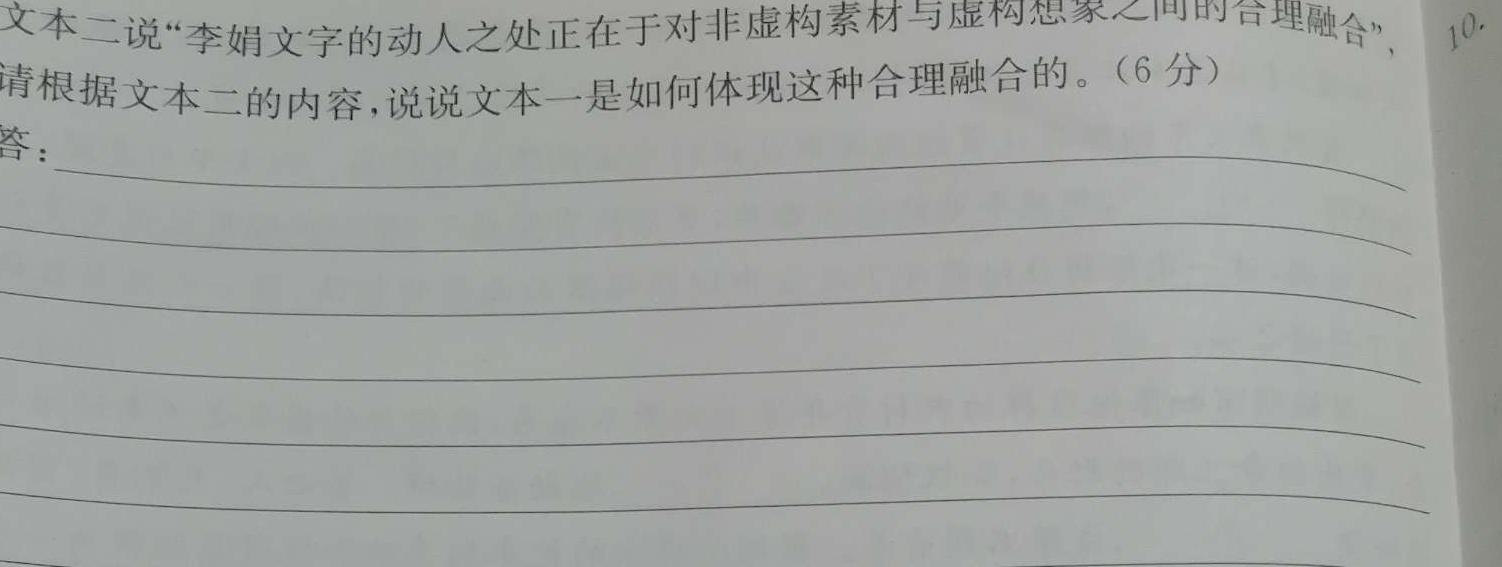 文本二说“李娟文字的动人之处正在于对非虚构素材与虚构想象之间的合理融合”,
请根据文本二的内容,说说文本一是如何体现这种合理融合的。(6 分)
答:
10.